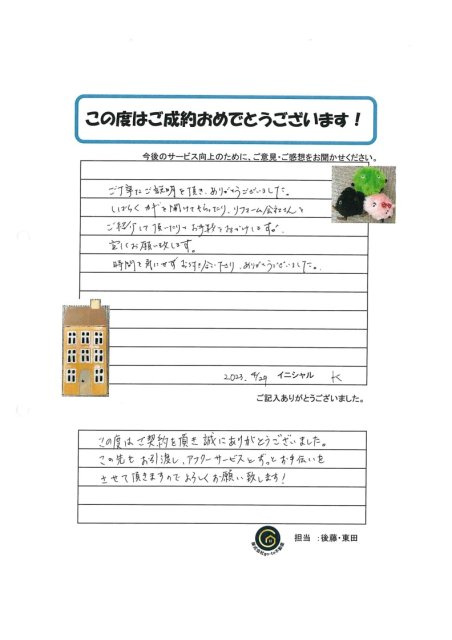 この度はご成約おめでとうございます！
今後のサービス向上のために、ご意見・ご感想をお聞かせください。
ご丁寧にご説明を頂き、ありがとうございました。
しばらく カギを開けてもらったり、リフォーム会社さんを
ご紹介して頂いたりお手数をおかけしますが、
宜しくお願い致します。
時間を気にせず ありがとうございました。
2023. 4/29 イニシャル K
ご記入ありがとうございました。
この度はご契約を頂き誠にありがとうございました。
この先も お引渡し、アフターサービスとずっとお手伝いを
させて頂きますのでよろしくお願い致します！
担当 ：後藤・東田